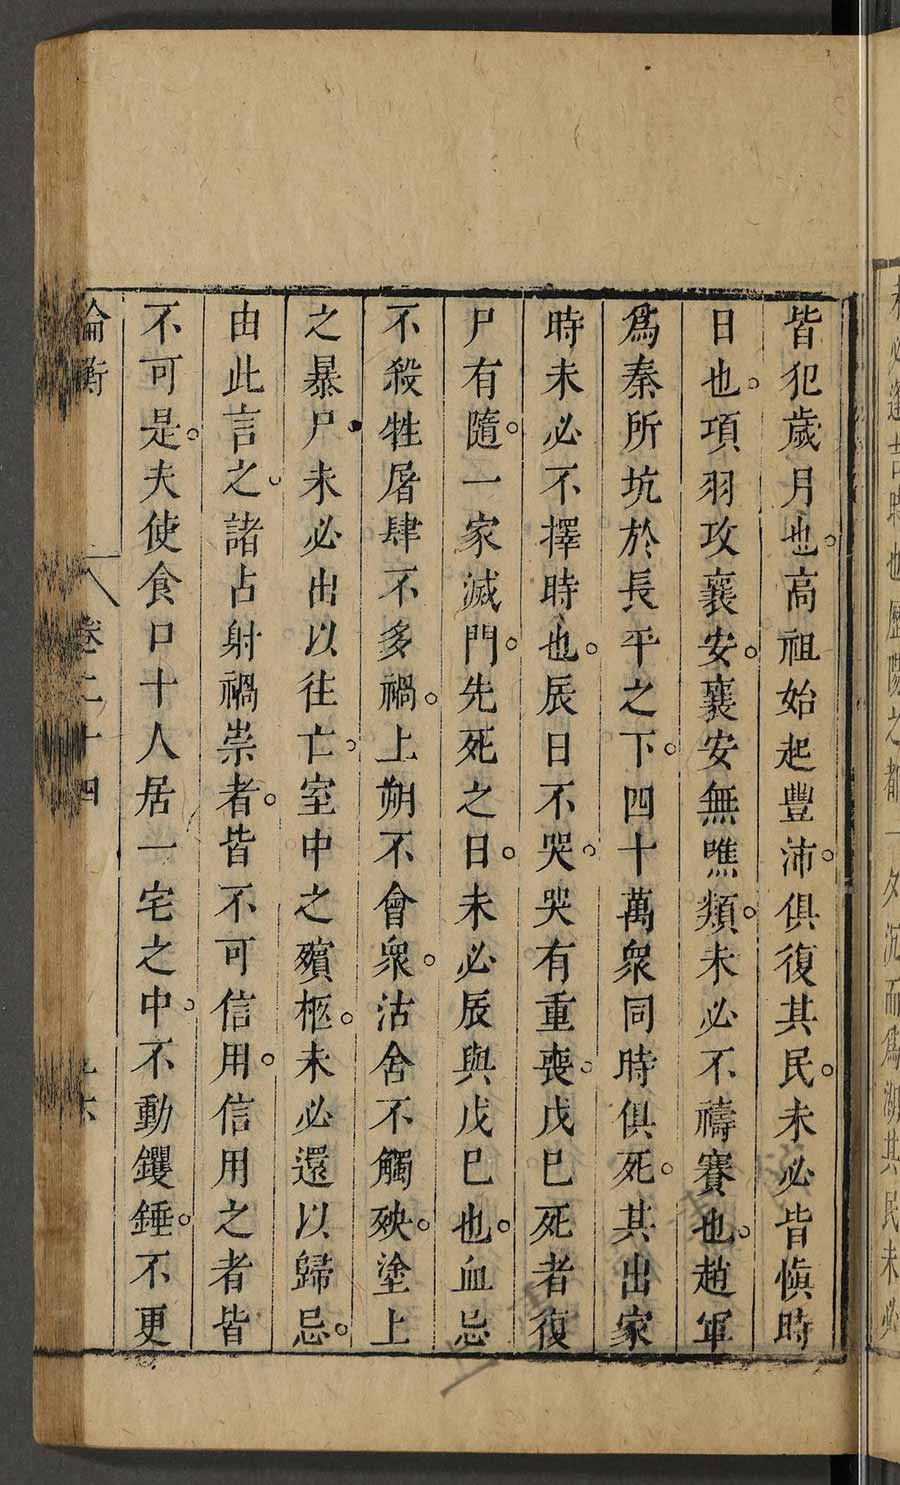 未必逢吉時也歷陽之都一夕沉而爲湖其民未必
皆犯歲月也。高祖始起豐沛。俱復其民。未必皆慎時
日也。項羽攻襄安。襄安無噍類。未必不禱賽也。趙軍
爲秦所坑於長平之下。四十萬衆同時俱死。其出家
時未必不擇時也。辰日不哭。哭有重喪。戊巳死者復
尸有隨。一家滅門。先死之日。未必辰與戊巳也。血忌
不殺牲屠肆不多禍。上朔不會衆。沽舍不觸殃。塗上
之暴尸。未必出以往亡。室中之殯柩。未必還以歸忌。
由此言之。諸占射禍祟者。皆不可信用。信用之者皆
不可是。夫使食口十人居一宅之中。不動钁錘。不更
論衡 卷二十四